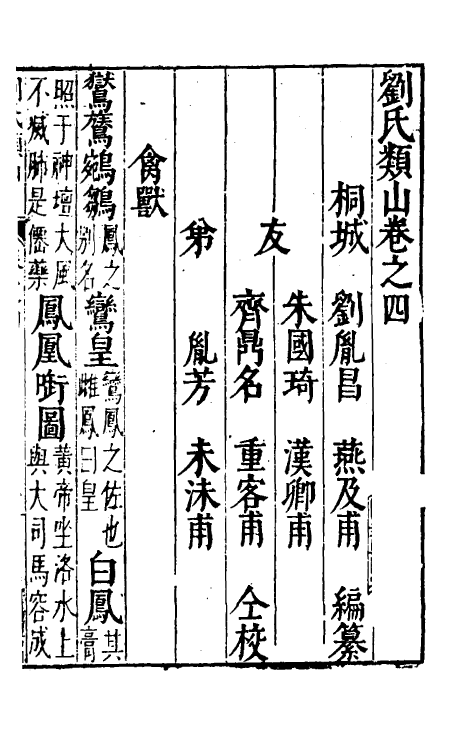 劉氏類山卷之四
桐城 劉胤昌 燕及甫 編纂
友 朱國琦 漢卿甫
齊鼎名 重客甫 仝校
弟 胤芳 未沬甫
禽獸
鸑鷟鵷鶵鳳之別名鸞皇鸞鳳之佐也雌鳳曰皇白鳳其膏
照于神壇大風不滅肺是僊藥鳳凰㘅圖黃帝坐洛水上與大司馬容成